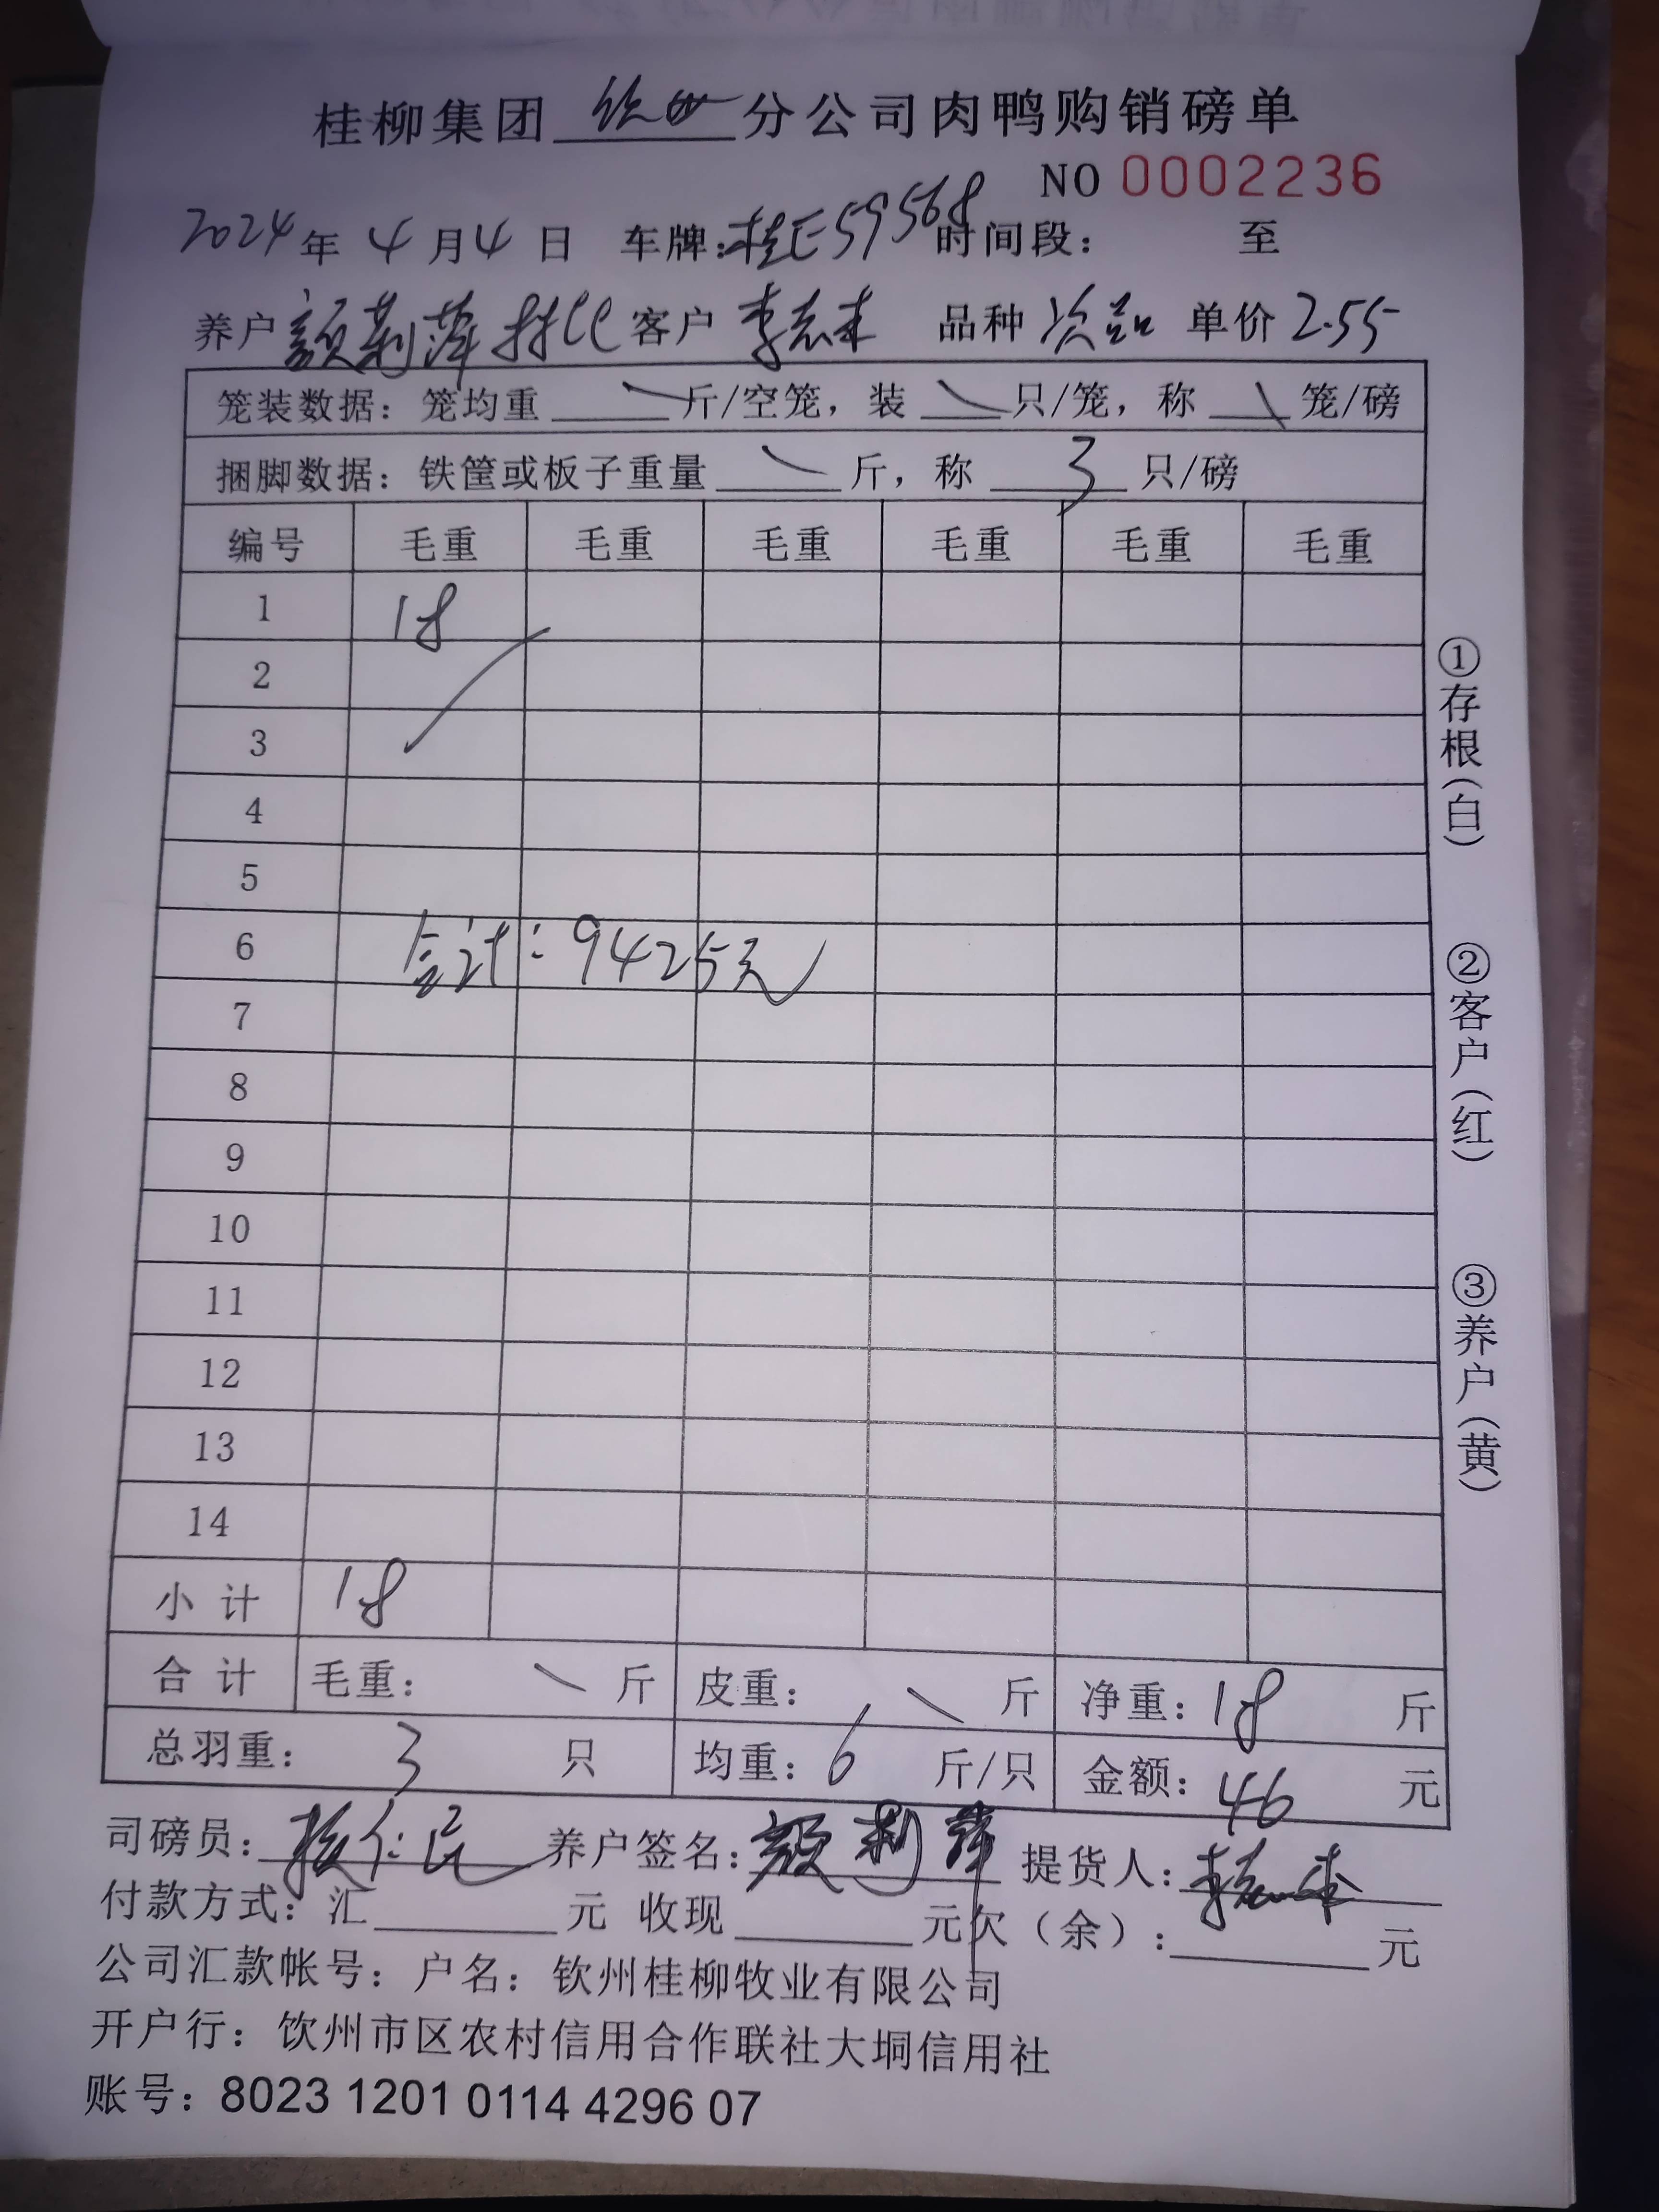 桂柳集团 钦州 分公司肉鸭购销磅单
NO 0002236
2024年4月4日 车牌:桂E59568 时间段: 至
养户 颜莉萍 客户 李志来 品种 次品 单价 2.55
笼装数据: 笼均重 斤/空笼, 装 只/笼, 称 笼/磅
捆脚数据: 铁筐或板子重量 斤, 称 3 只/磅
编号 毛重 毛重 毛重 毛重 毛重 毛重
1 18
2
3
4
5
6 合计:9425元
7
8
9
10
11
12
13
14
小计 18
合计 毛重: 斤 皮重: 斤 净重:18 斤
总羽重: 3 只 均重:6 斤/只 金额:46 元
司磅员: 养户签名:颜莉萍 提货人:李志来
付款方式: 汇 元 收现 元欠(余): 元
公司汇款帐号: 户名: 钦州桂柳牧业有限公司
开户行: 饮州市区农村信用合作联社大垌信用社
账号: 8023 1201 0114 4296 07
①存根(白)
②客户(红)
③养户(黄)